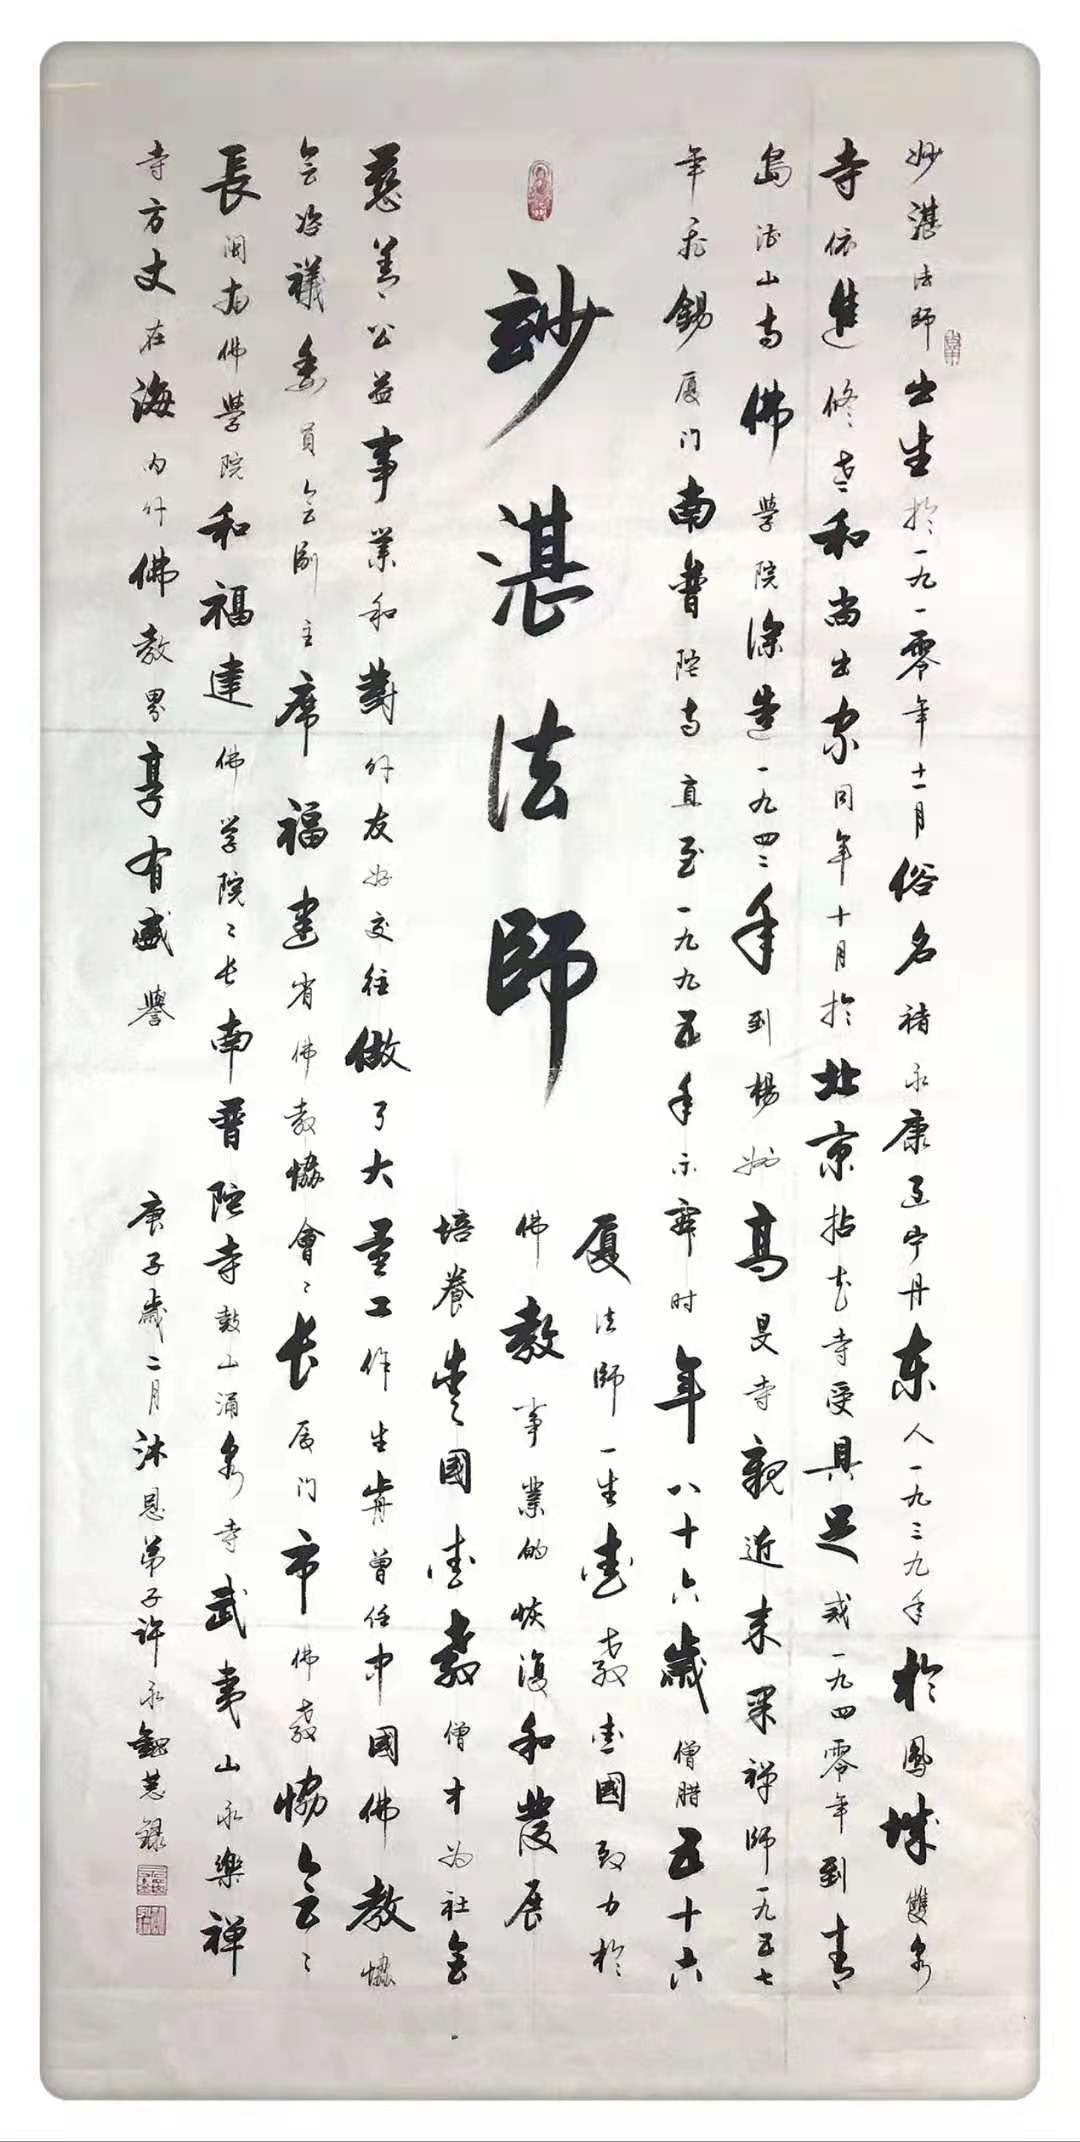 妙湛法師出生於一九一零年十一月俗名褚永康辽宁丹东人一九三九年於鳳城雙泉
寺依進修老和尚出家同年十月於北京拈花寺受具足戒一九四零年到青
島湛山寺佛學院深造一九四二年到楊州髙旻寺親近来果禅師一九五七
年飛錫厦门南普陀寺直至一九九五年示寂时年八十六歲僧腊五十六
厦法師一生爱教爱國致力於
佛教事業的恢復和發展
培養爱國爱教僧才为社会
妙湛法師
慈善公益事業和對外友好交往做了大量工作生前曾任中國佛教協
会咨議委員会副主席福建省佛教協會會长厦门市佛教協会会
長闽南佛學院和福建佛学院院长南普陀寺鼓山涌泉寺武夷山永樂禅
寺方丈在海内外佛教界享有盛譽
庚子歲二月沐恩弟子许永恭録